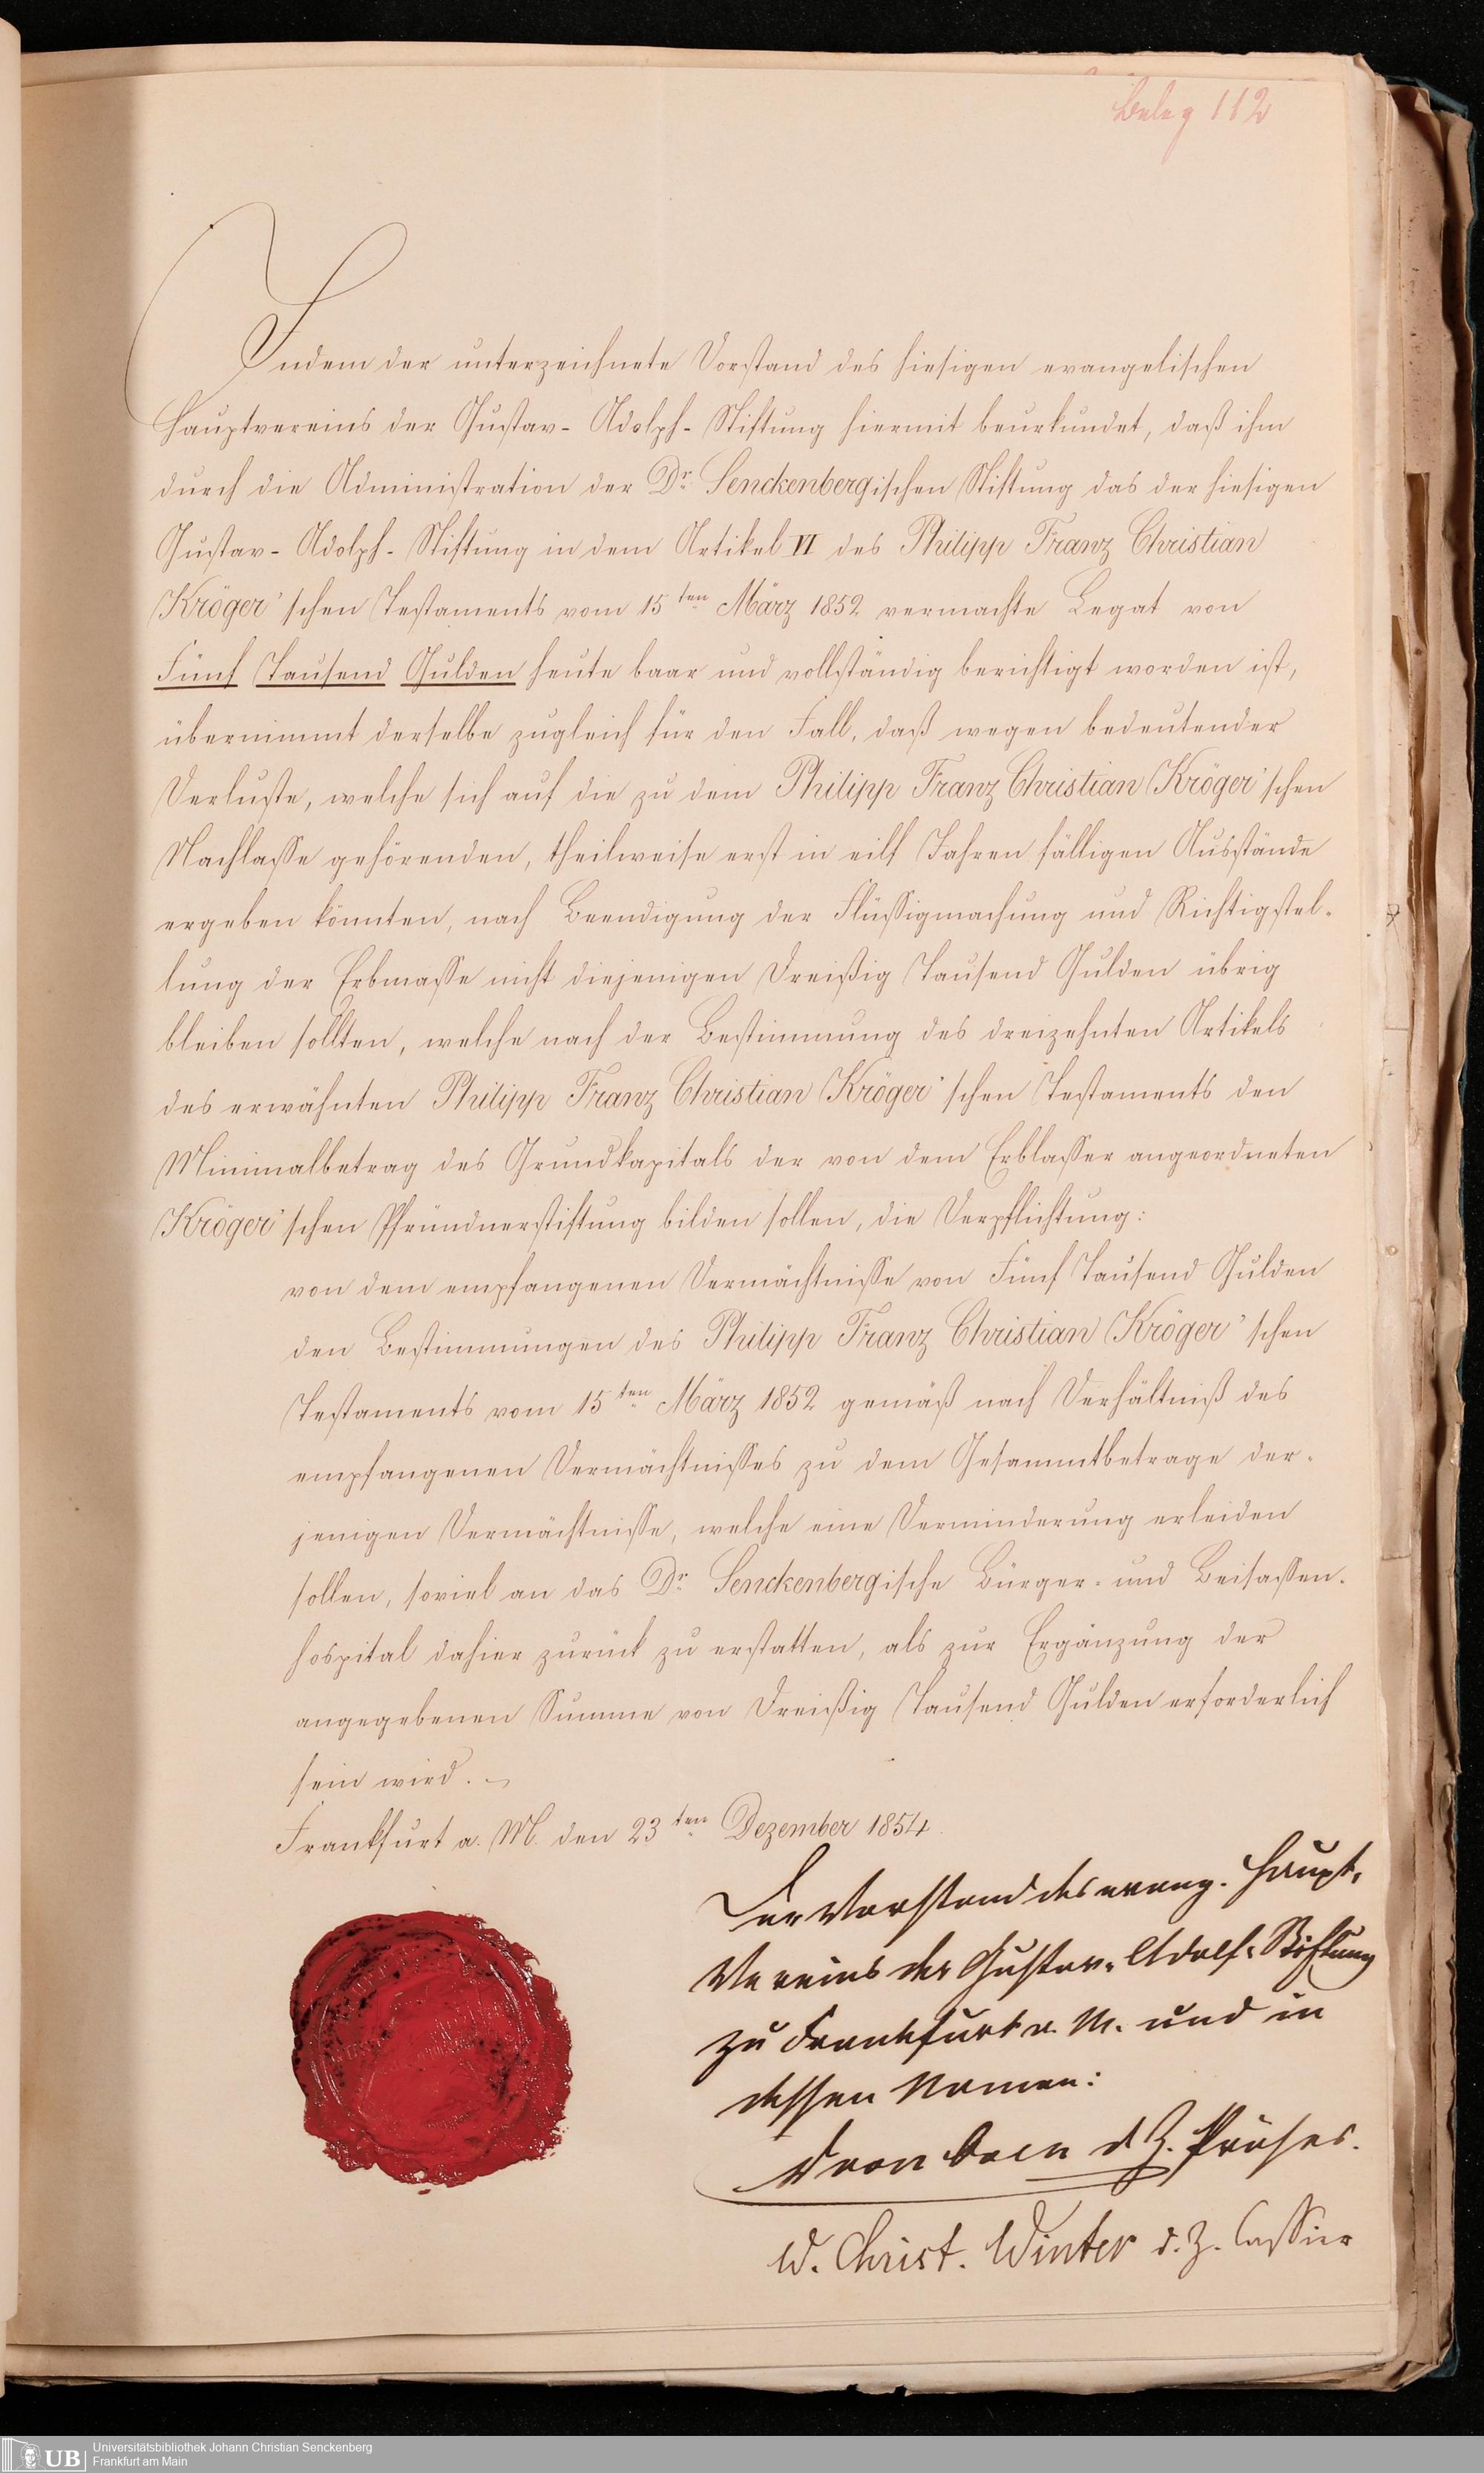 Beleg 112
Indem der unterzeichnete Vorstand des hiesigen evangelischen
Hauptvereins der Gustav- Adolph- Stiftung hiermit beurkundet, daß ihm
durch die Administration der Dr. Senckenbergischen Stiftung das der hiesigen
Gustav- Adolph- Stiftung in dem Artikel VI des Philipp Franz Christian
Kröger'schen Testaments vom 15ten März 1852 vermachte Legat von
Fünf Tausend Gulden heute baar und vollständig berichtigt worden ist,
übernimmt derselbe zugleich für den Fall, daß wegen bedeutender
Verluste, welche sich auf die zu dem Philipp Franz Christian Kröger'schen
Nachlasse gehörenden, theilweise erst in eilf Jahren fälligen Ausstände
ergeben könnten, nach Beendigung der Flüssigmachung und Richtigstel-
lung der Erbmasse nicht diejenigen Dreißig Tausend Gulden übrig
bleiben sollten, welche nach der Bestimmung des dreizehnten Artikels
des erwähnten Philipp Franz Christian Kröger'schen Testaments den
Minimalbetrag des Grundkapitals der von dem Erblasser angeordneten
Kröger'schen Pfründnerstiftung bilden sollen, die Verpflichtung:
von dem empfangenen Vermächtnisse von Fünf Tausend Gulden
den Bestimmungen des Philipp Franz Christian Kröger'schen
Testaments vom 15ten März 1852 gemäß nach Verhältniß des
empfangenen Vermächtnisses zu dem Gesammtbetrage der-
jenigen Vermächtnisse, welche eine Verminderung erleiden
sollen, soviel an das Dr. Senckenbergische Bürger- und Beisassen-
hospital dahier zurück zu erstatten, als zur Ergänzung der
angegebenen Summe von Dreißig Tausend Gulden erforderlich
sein wird. -
Frankfurt a. M. den 23ten Dezember 1854.
Der Vorstand des evang. Haupt-
Vereins der Gustav- Adolf- Stiftung
zu Frankfurt a. M. und in
dessen Namen:
d. Z. Präses.
W. Christ. Winter d. Z. Cassier
UB
Universitätsbibliothek Johann Christian Senckenberg
Frankfurt am Main